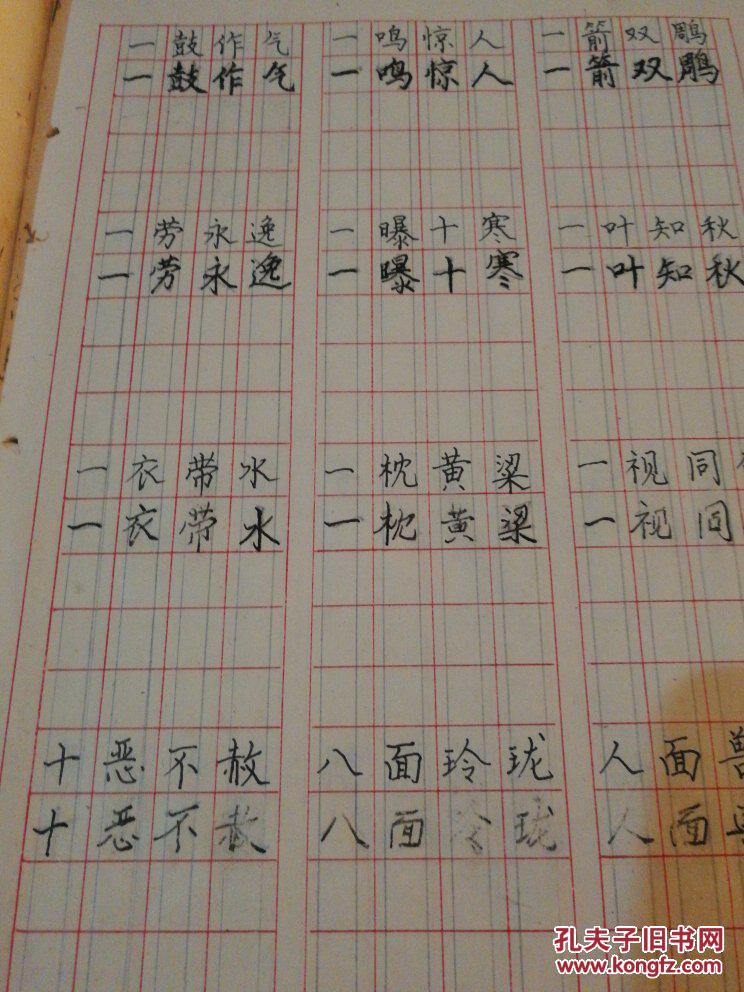 一鼓作气 一鸣惊人 一箭双雕
一鼓作气 一鸣惊人 一箭双雕
一劳永逸 一曝十寒 一叶知秋
一劳永逸 一曝十寒 一叶知秋
一衣带水 一枕黄梁 一视同
一衣带水 一枕黄梁 一视同
十恶不赦 八面玲珑 人面兽
十恶不赦 八面玲珑 人面
孔夫子旧书网
www.kongfz.com